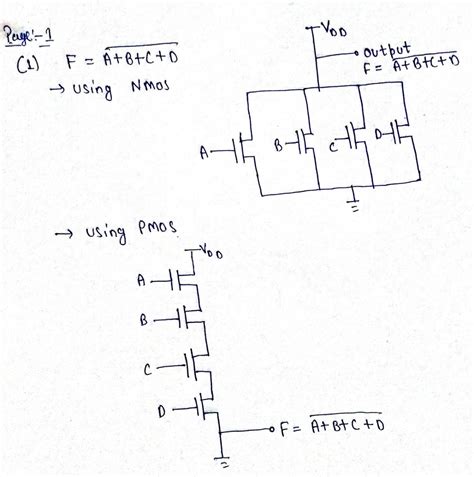 Page:-1
(1) F = \overline{A+B+C+D}
→ using NMOS
VDD
output
F = \overline{A+B+C+D}
A
B
C
D
→ using PMOS
VDD
A
B
C
D
F = \overline{A+B+C+D}